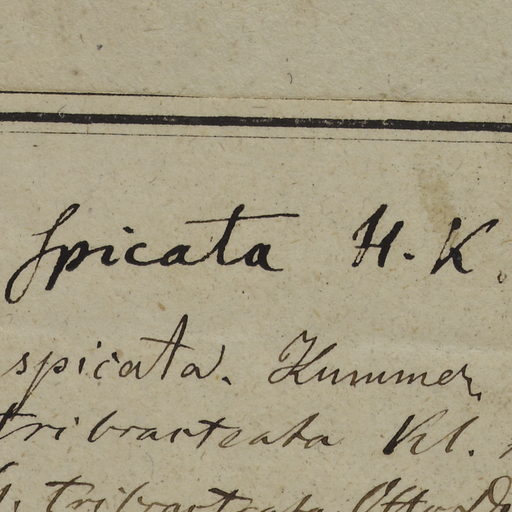 spicata H. K.
spicata. Kummer,
tribracteata Kl.
tribracteata Otto